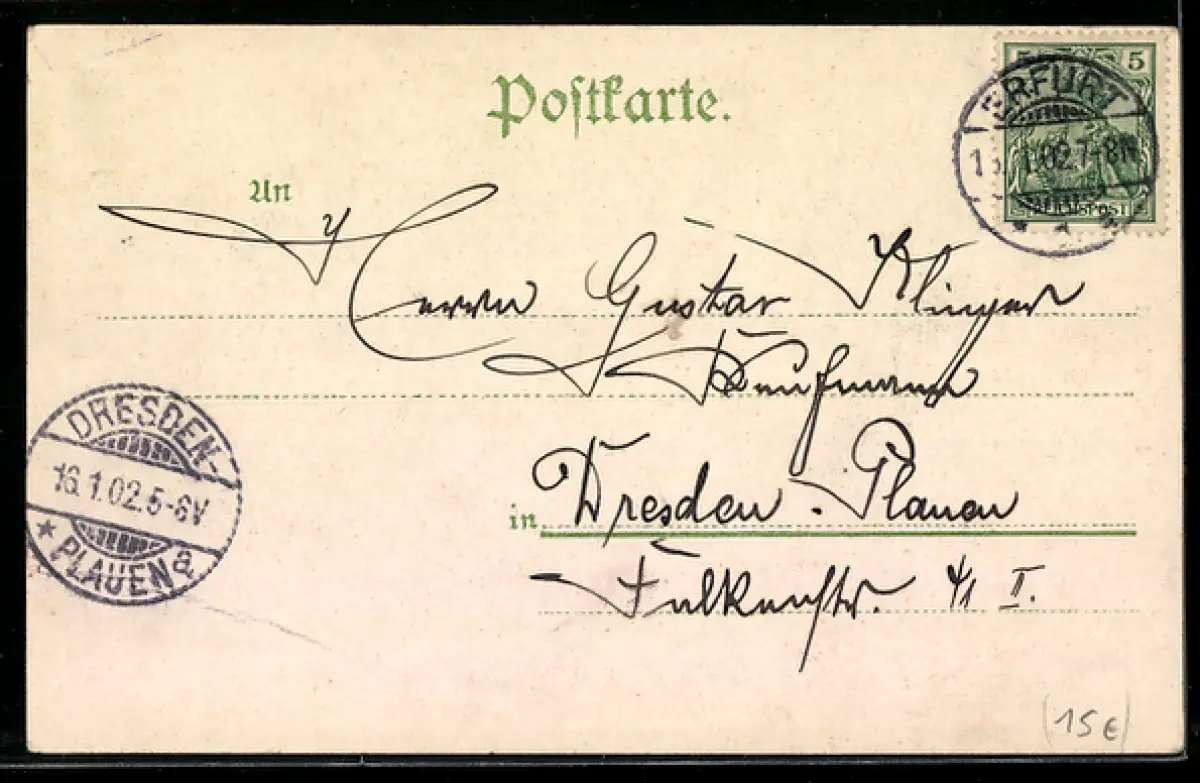 Postkarte.
5
ERFURT
1.02.7-8N
REICHSPOST
An
Herrn Gustav Klinger
Kaufmann
DRESDEN-
16.1.02.5-6V
* PLAUEN
in Dresden-Plauen
Falkenstr. II.
(15€)